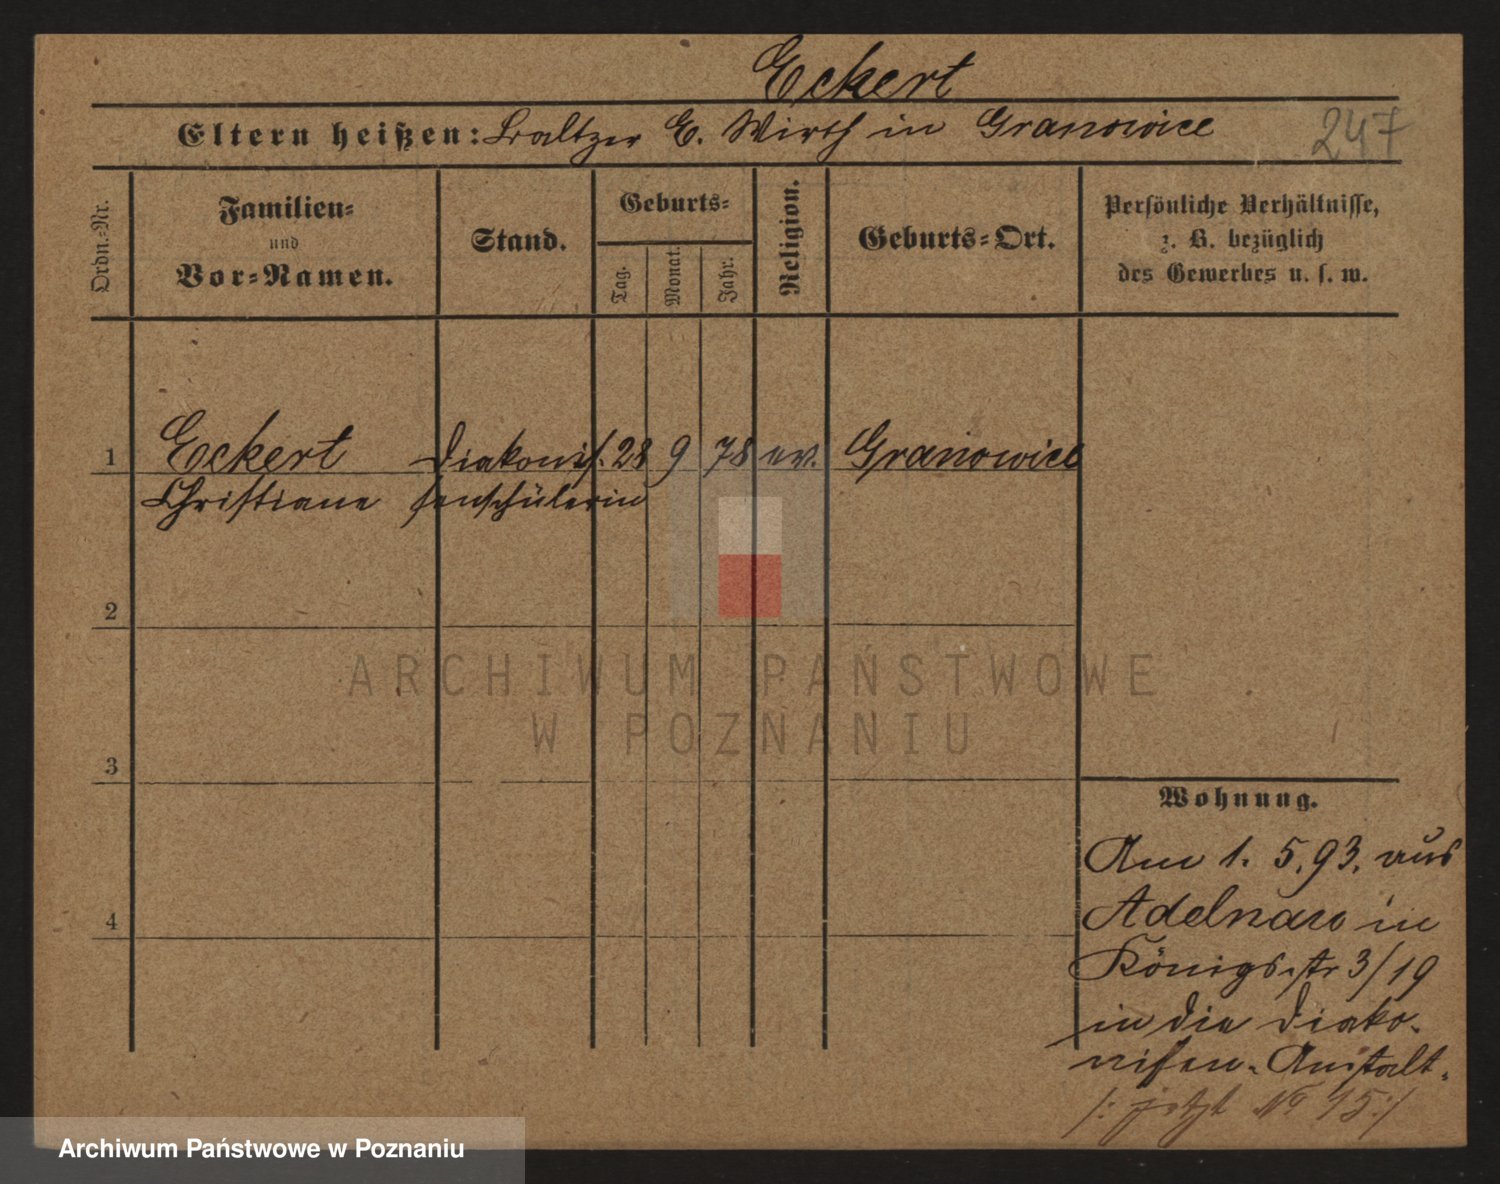 Eckert
Eltern heißen: Baltzer E. Wirth in Granowice
247
Ordn.-Nr.
Familien-
und
Vor-Namen.
Stand.
Geburts-
Tag.
Monat.
Jahr.
Religion.
Geburts-Ort.
Persönliche Verhältnisse,
z. B. bezüglich
des Gewerbes u. s. w.
1 Eckert Diakonis. 28 9 78 ev. Granowice
Christiane senschülerin
2
3
4
Wohnung.
Am 1. 5. 93. aus
Adelnaw in
Königsstr 3/19
in die Diako-
nissen-Anstalt.
/: jetzt No 15 :/
ARCHIWUM PAŃSTWOWE
W POZNANIU
Archiwum Państwowe w Poznaniu